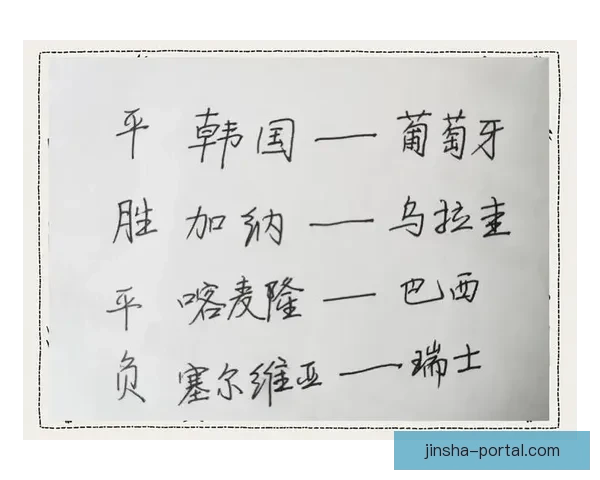 平 韩国 — 葡萄牙
胜 加纳 — 乌拉圭
平 喀麦隆 — 巴西
负 塞尔维亚 — 瑞士
jinsha-portal.com